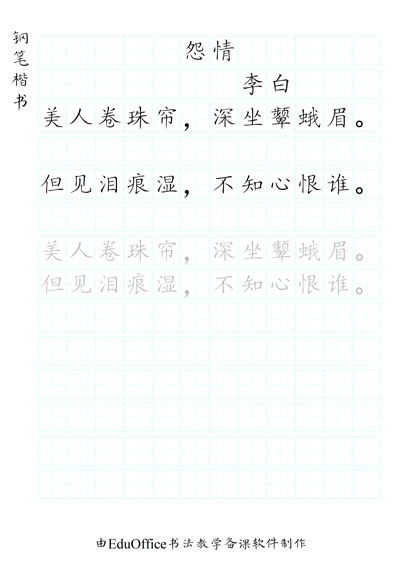 钢笔楷书
怨情
李白
美人卷珠帘，深坐颦蛾眉。
但见泪痕湿，不知心恨谁。
美人卷珠帘，深坐颦蛾眉。
但见泪痕湿，不知心恨谁。
由EduOffice书法教学备课软件制作